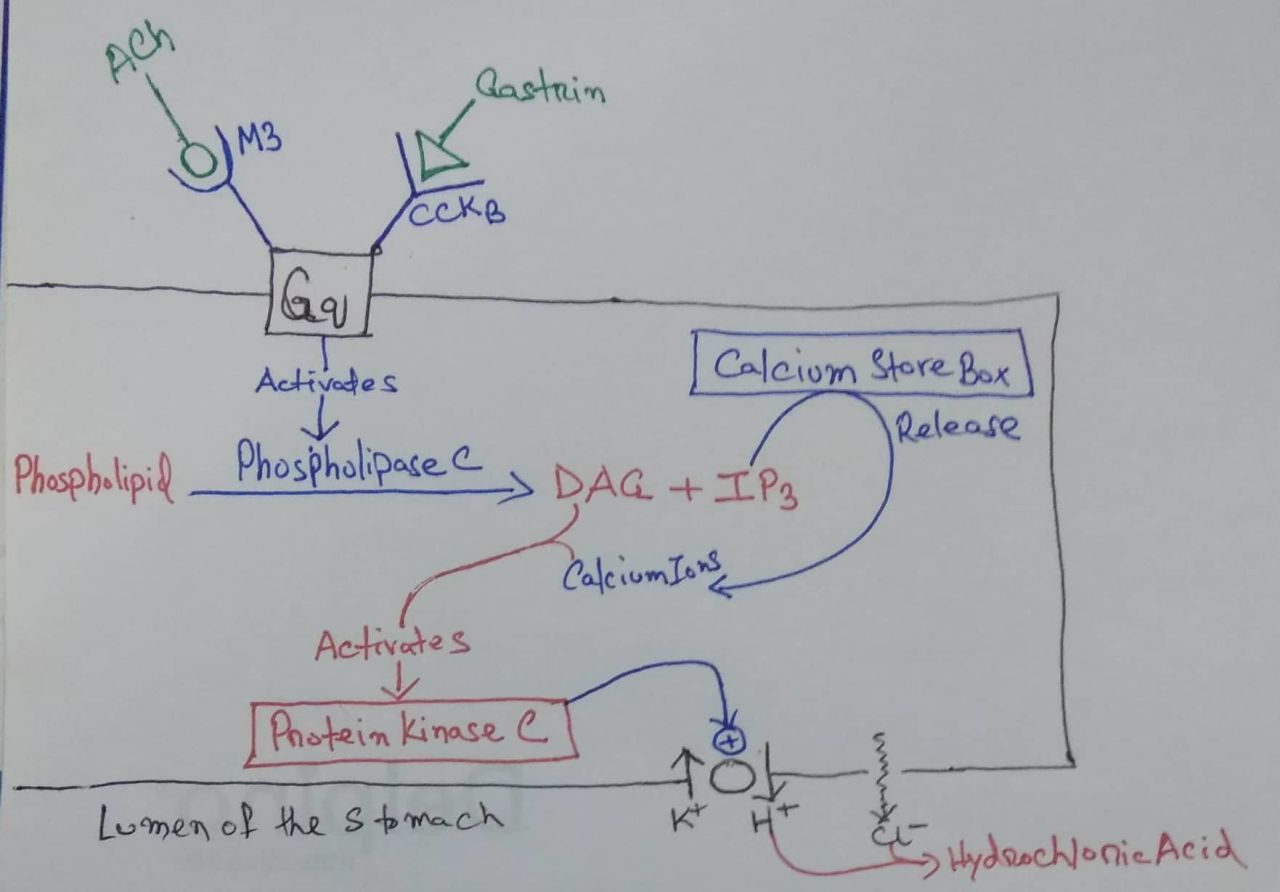 ACh
Gastrin
M3
CCKB
Gq
Activates
Calcium Store Box
Release
Phospholipid
Phospholipase C
DAG + IP3
Calcium Ions
Activates
Protein Kinase C
+
Lumen of the Stomach
K+
H+
Cl-
Hydrochloric Acid